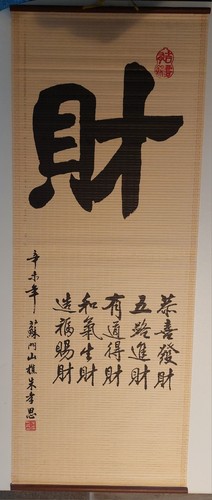 財
恭喜發財
五路進財
有道得財
和氣生財
造福賜財
辛未年 蘇門山樵朱孝思